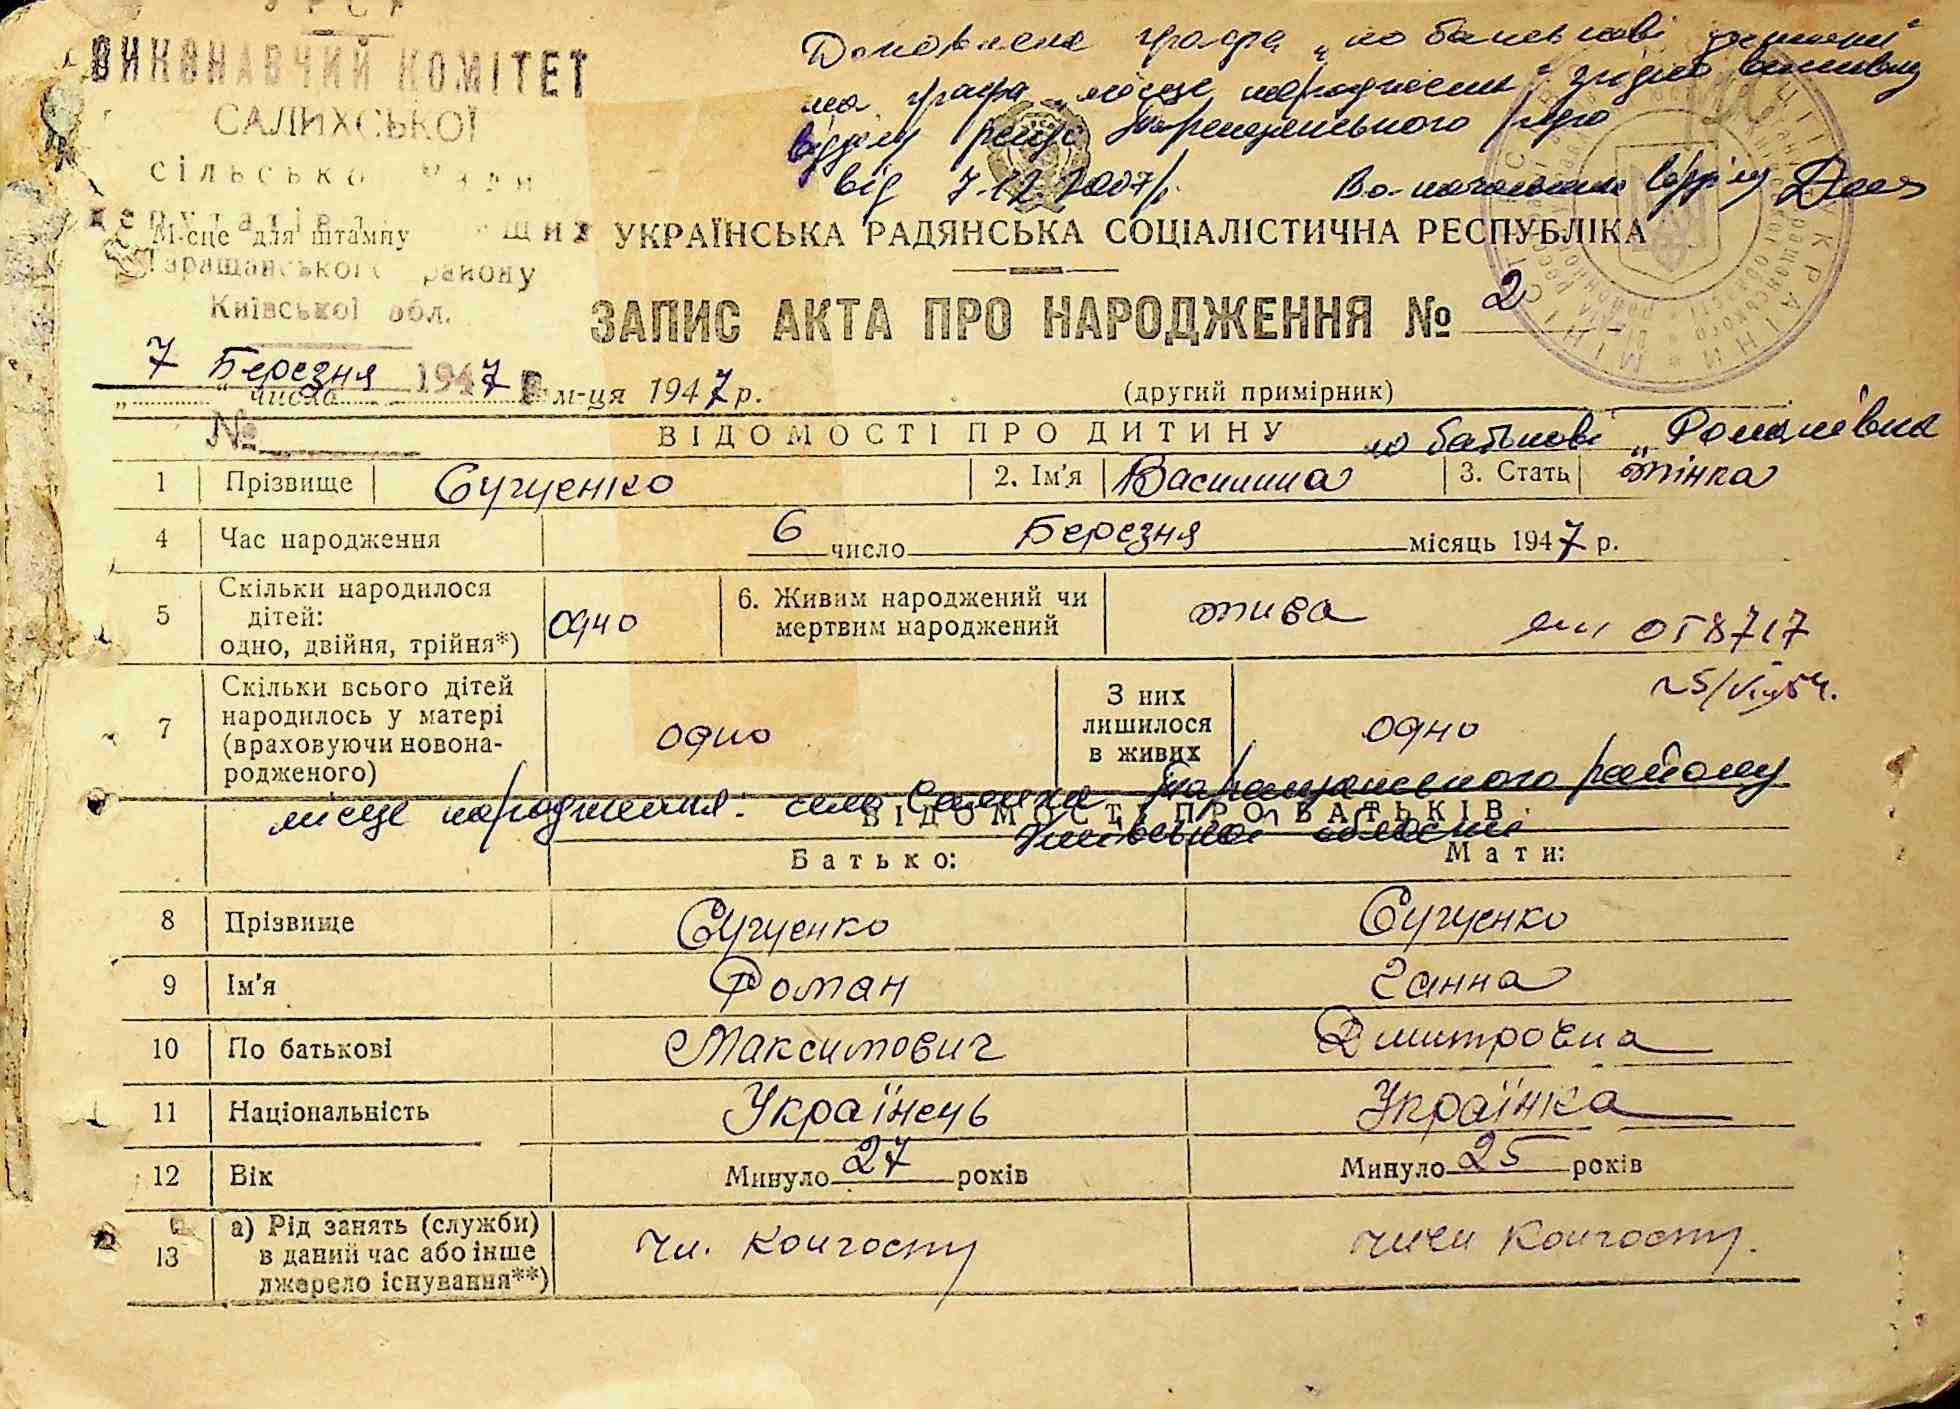 УРСР
ВИКОНАВЧИЙ КОМІТЕТ
САЛИХСЬКОЇ
Місце для штампу
Таращанського району
Київської обл.
7 Березня 1947 р
№
Доповнена графа „по батькові
та графа „місце народження" згідно висновку
відділу Таращанського р-ну
від 7.12.2007р.
УКРАЇНСЬКА РАДЯНСЬКА СОЦІАЛІСТИЧНА РЕСПУБЛІКА
ЗАПИС АКТА ПРО НАРОДЖЕННЯ № 2
„ числа м-ця 1947 р.
(другий примірник)
ВІДОМОСТІ ПРО ДИТИНУ
по батькові „Романівна
1 Прізвище Сугуенко 2. Ім'я Василина 3. Стать жінка
4 Час народження 6 число Березня місяць 1947 р.
5 Скільки народилося
дітей:
одно, двійня, трійня*) одно
6. Живим народжений чи
мертвим народжений жива
058717
7 Скільки всього дітей
народилось у матері
(враховуючи новона-
родженого) одно
З них
лишилося
в живих одно
місце народження: село Салиха Таращанського району
Київської області
ВІДОМОСТІ ПРО БАТЬКІВ
Батько: Мати:
8 Прізвище Сугуенко Сугуенко
9 Ім'я Роман Ганна
10 По батькові Максимович Дмитровна
11 Національність Українець Українка
12 Вік Минуло 27 років Минуло 25 років
13 а) Рід занять (служби)
в даний час або інше
джерело існування**) чл. колгоспу член колгоспу.